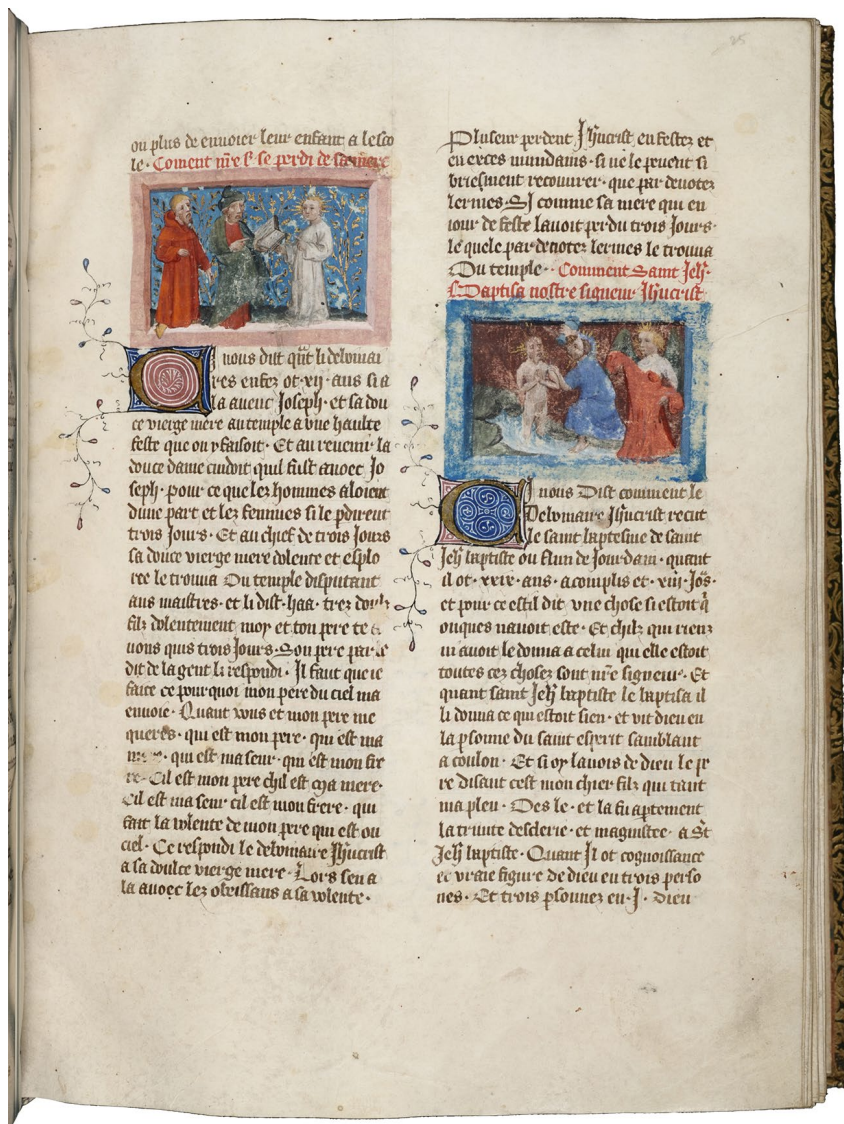 ou plus de envoier leur enfant a lesco
le. Coment nr̃e s̃. se perdi de sa mere
Ci nous dist qũt li debonnai
res enfez ot .xij. ans si a
la avenc Joseph. et sa dou
ce vierge mere au temple a une haulte
feste que on y faisoit. Et au revenir la
douce dame cuidoit quil fust avoec Jo
seph. pour ce que lez hommes aloient
dune part et lez femmes si le pdirent
trois Jours. Et au chief de trois Jours
sa douce vierge mere dolente et esplo
ree le trouva Ou temple disputant
aus maistres. et li dist. haa. trez doulz
filz dolentement moy et ton pere te
avons quis trois Jours. Son pere par le
dit de la gent li respondi. Il faut que ie
face ce pourquoi mon pere du ciel ma
envoie. Quant vous et mon pere me
querés. qui est mon pere. qui est ma
mere. qui est ma seur. qui est mon fre
re. Cil est mon pere chil est ma mere.
Cil est ma seur cil est mon frere. qui
fait la volente de mon pere qui est ou
ciel. Ce respondi le debonaire Jh̃ucrist
a sa doulce vierge mere. Lors sen a
la avoec lez obeissans a sa volente.
Pluseur perdent Jh̃ucrist en festez et
en exces mundains. si ne le pevent si
briefment recouvrer. que par devotez
lermes. SJ comme sa mere qui en
iour de feste lavoit perdu trois Jours.
le quele par devotez lermes le trouva
Ou temple. Comment Saint Jeh̃.
Baptisa nostre signeur Jh̃ucrist
Ci nous Dist comment le
Debonaire Jh̃ucrist recut
le saint baptesme de saint
Jeh̃ baptiste ou flun de Jourdain. quant
il ot .xxix. ans. acomplis et .xiij. Jõs.
et pour ce est il dit une chose si estoit q̃
onques navoit este. Et chilz qui rienz
ni avoit le donna a celui qui elle estoit
toutes cez chosez sont nr̃e signeur. Et
quant saint Jeh̃ baptiste le baptisa il
li donna ce qui estoit sien. et vit dieu en
la psonne du saint esperit samblant
a coulon. Et si oy la vois de dieu le pe
re disant cest mon chier filz qui tant
ma pleu. Des le. et la fu apertement
la trinite desclerie. et magnistee. a St
Jeh̃ baptiste. Quant Jl ot cognoissance
et vraie figure de dieu en trois perso
nes. Et trois psonnez en .J. Dieu
25